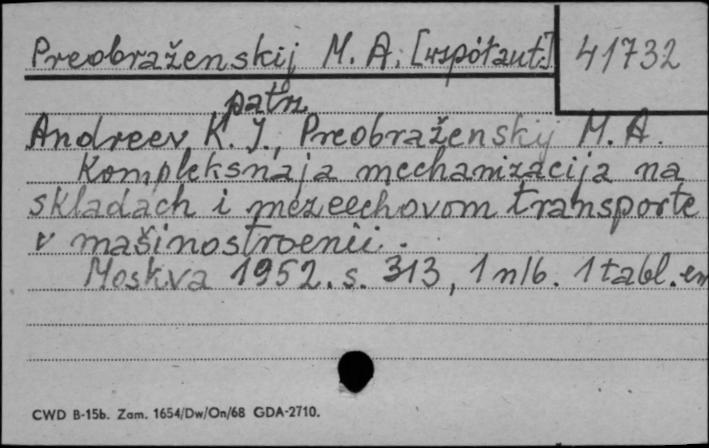 Preobraženskij M. A. [współaut.]
41732
patrz
Andreev K. J., Preobraženskij M. A.
Kompleksnaja mechanizacija na
skladach i mezecechovom transporte
v mašinostroenii.
Moskva 1952. s. 313, 1 nlb. 1 tabl.
CWD B-15b. Zam. 1654/Dw/On/68 GDA-2710.